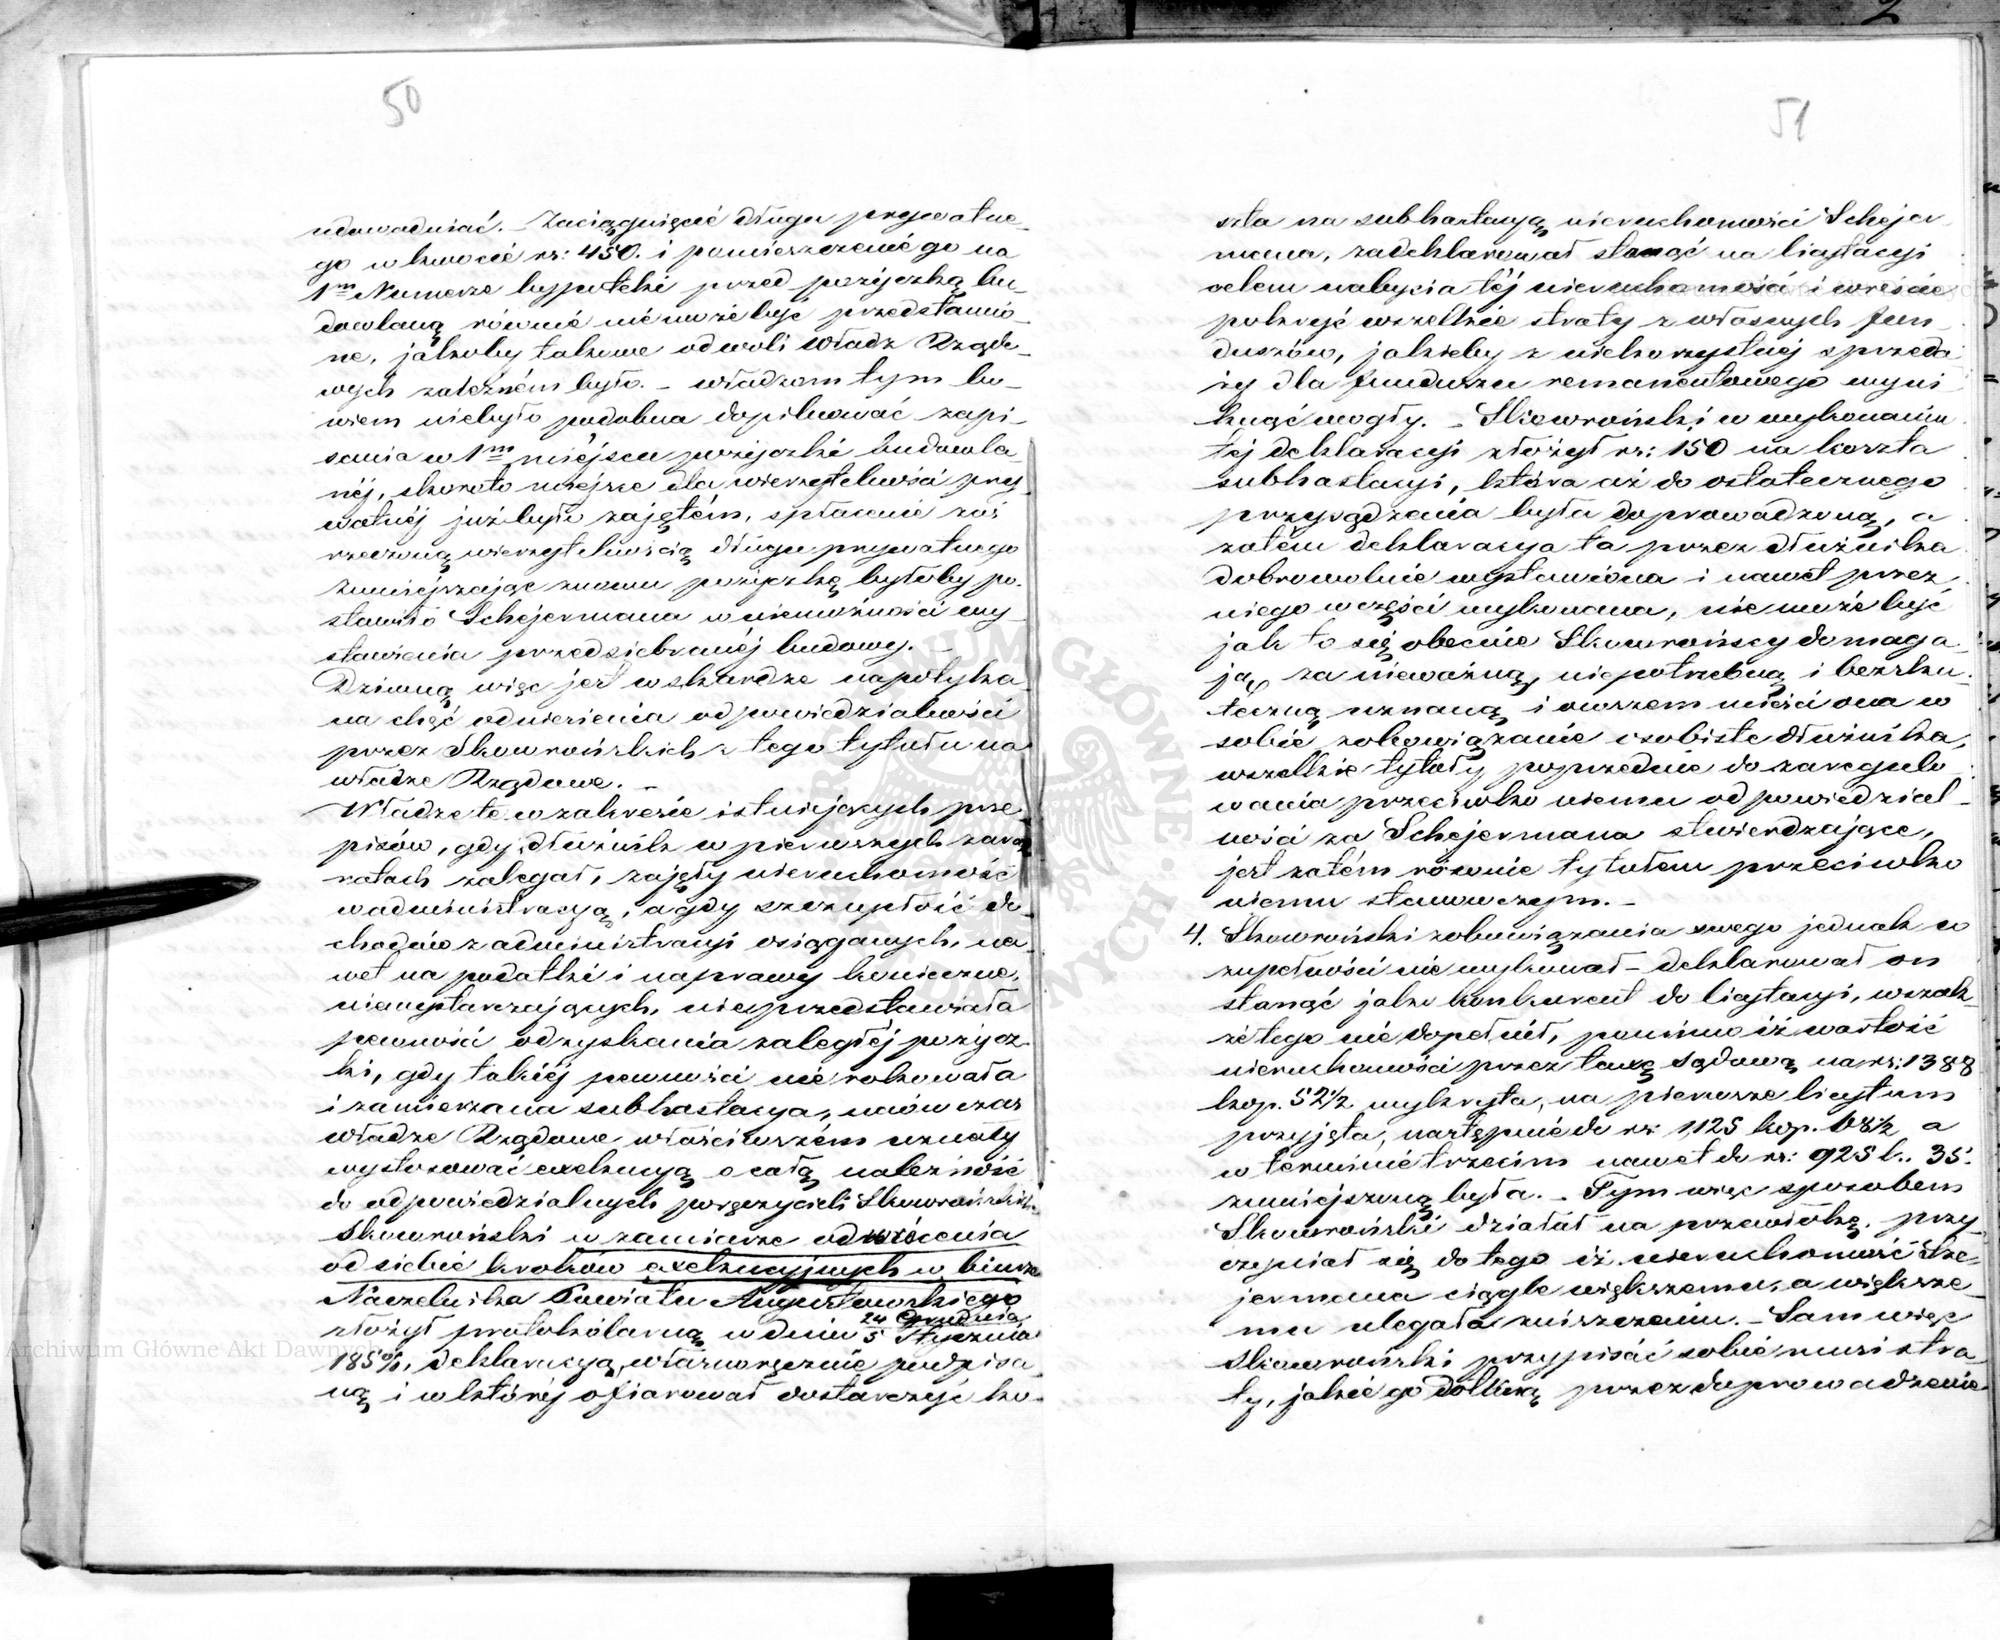 50
udowadniać. – Zaciągnięcié długu prywatne_
go w kwocié rs: 450. i pomieszczenié go na
1m Numerze hypoteki przed pożyczką bu_
dowlaną równié nié może być przedstawio_
ne, jakoby takowe od woli Władz Rządo_
wych zależném było. – Władzom tym bo_
wiem niebyło podobna dopilnować zapi_
sania w 1m miéjscu pożyczki budowla_
néj, skoro to miejsce dla wierzytelności pry_
watnéj już było zajętém, spłacenié zaś
rzeczoną wierzytelnością długu prywatnego
zmniejszając znowu pożyczkę byłoby po_
stawiło Schejermana w niemożności wy_
stawienia przedsiebranéj budowy. –
Dziwną więc jest w skardze napotyka_
na chęć odniesienia odpowiedzialności
przez Skowrońskich z tego tytułu na
władze Rządowe. –
Władze te w zakresie istniejących prze_
pisów, gdy dłużnik w pierwszych zaraz
ratach zalegał, zajęły nieruchomość
w administracyą, a gdy szczupłość do_
chodów z administracyi osiąganych, na_
wet na podatki i naprawy konieczne
niewystarczających, nieprzedstawiała
pewności odzyskania zaległéj pożycz_
ki, gdy takiéj pewności nié rokowała
i zamierzana subhastacya, wówczas
władze Rządowe właściwszém uznały
wystosować exekucyą o całą należność
do odpowiedzialnych poręczycieli Skowrońskich.
Skowroński w zamiarze odwrócenia
od siebié kroków exekucyjnych w biurze
Naczelnika Powiatu Augustowskiego
złożył protokólarną w dniu 24 Grudnia / 5 Stycznia
185 , deklaracyą własnoręcznié podpisa_
ną i w któréj ofiarował dostarczyć ko_
51
szta na subhastacyą nieruchomości Schejer_
mana, zadeklarował stanąć na licytacyi
celem nabycia téj nieruchomości i wreście
pokryć wszelkie straty z własnych fun_
duszów, jakieby z niekorzystnéj sprzeda_
ży dla funduszu remanentowego wyni_
knąć mogły. – Skowroński w wykonaniu
téj deklaracyi złożył rs: 150 na koszta
subhastacyi, która aż do ostatecznego
przysądzenia była doprowadzoną, a
zatém deklaracya ta przez dłużnika
dobrowolnié wystawiona i nawet przez
niego w części wykonana, nie możé być
jak to się obecnie Skowrońscy domaga_
ją, za nieważną, niepotrzebną i bezsku_
teczną uznaną, i owszem mieści ona w
sobié zobowiązanié osobiste dłużnika,
wszelkie tytuły poprzednio do zaregulo_
wania przeciwko niemu odpowiedzial_
ności za Schejermana stwierdzające,
jest zatém równié tytułem przeciwko
niemu stanowczym. –
4. Skowroński zobowiązania swego jednak w
zupełności nié wykonał – deklarował on
stanąć jako konkurent do licytacyi, wszak_
że tego nié dopełnił, pomimo iż wartość
nieruchomości przez taxę sądową na rs: 1388
kop. 52½ wykryta, na pierwsze licytum
przyjęta, następnié do rs: 1,125 kop. 68½ a
w terminié trzecim nawet do rs: 925 k. 35.
zmniejszoną była. – Tym więc sposobem
Skowroński działał na przewłokę, przy_
czyniał się do tego iż nieruchomość Sche_
jermana ciągle większemu, a większe_
mu ulegała zniszczeniu. – Sam więc
Skowroński przypisać sobié musi stra_
ty, jakié go dotkną przez doprowadzenié
Archiwum Główne Akt Dawnych